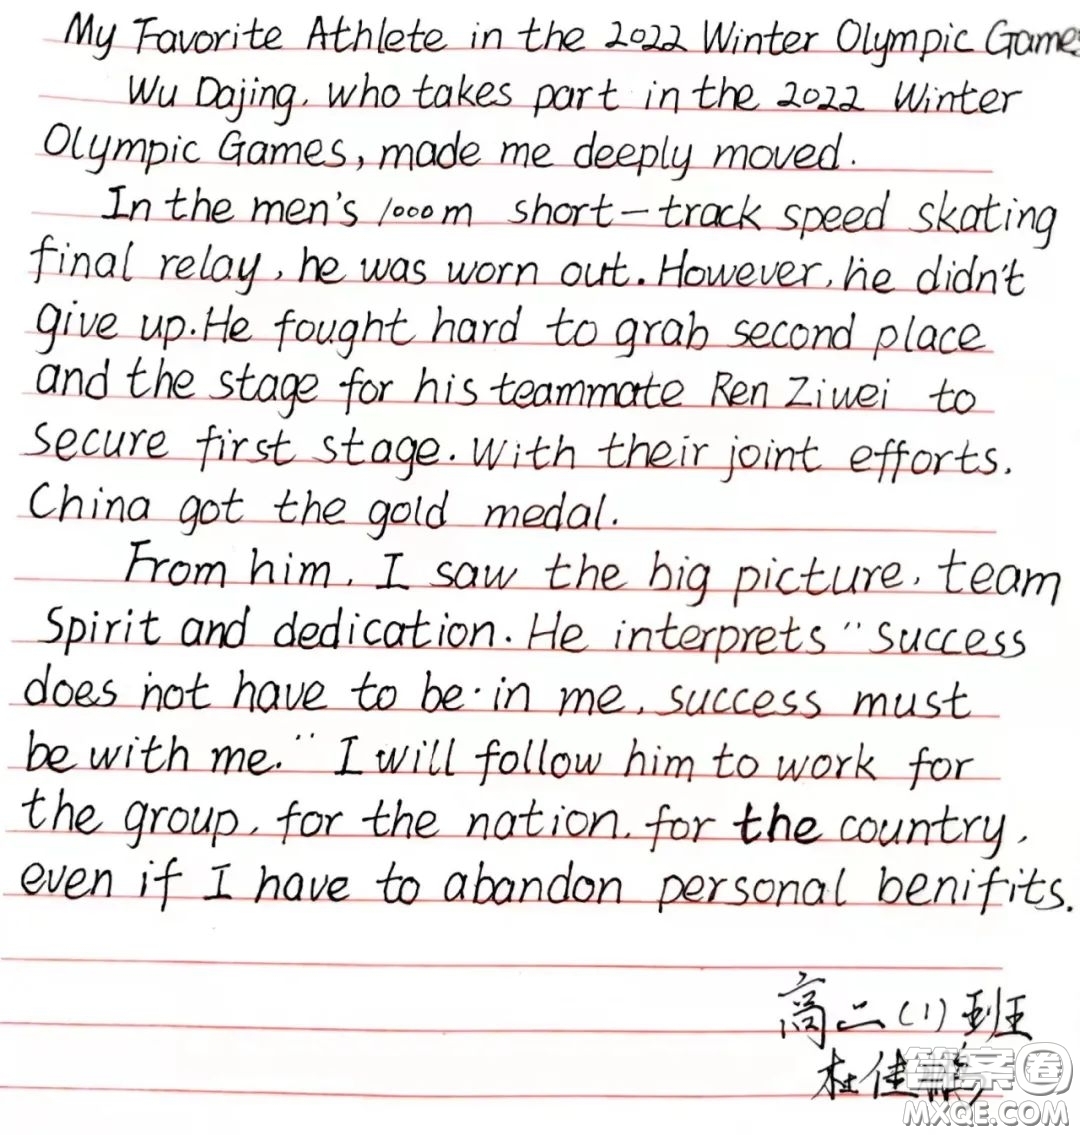 My Favorite Athlete in the 2022 Winter Olympic Games
Wu Dajing, who takes part in the 2022 Winter
Olympic Games, made me deeply moved.
In the men's 1000m short-track speed skating
final relay, he was worn out. However, he didn't
give up. He fought hard to grab second place
and the stage for his teammate Ren Ziwei to
secure first stage. With their joint efforts,
China got the gold medal.
From him, I saw the big picture, team
Spirit and dedication. He interprets "success
does not have to be in me, success must
be with me." I will follow him to work for
the group, for the nation, for the country,
even if I have to abandon personal benifits.
高二(1)班
杜佳
答案圈
MXQE.COM